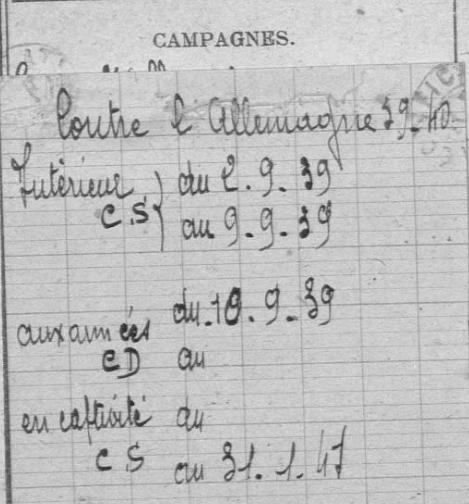 CAMPAGNES.
Contre l'Allemagne 39-40
Intérieur du 2.9.39
C.S au 9.9.39
aux armées du 10.9.39
CD au
en captivité du
CS au 31.1.41